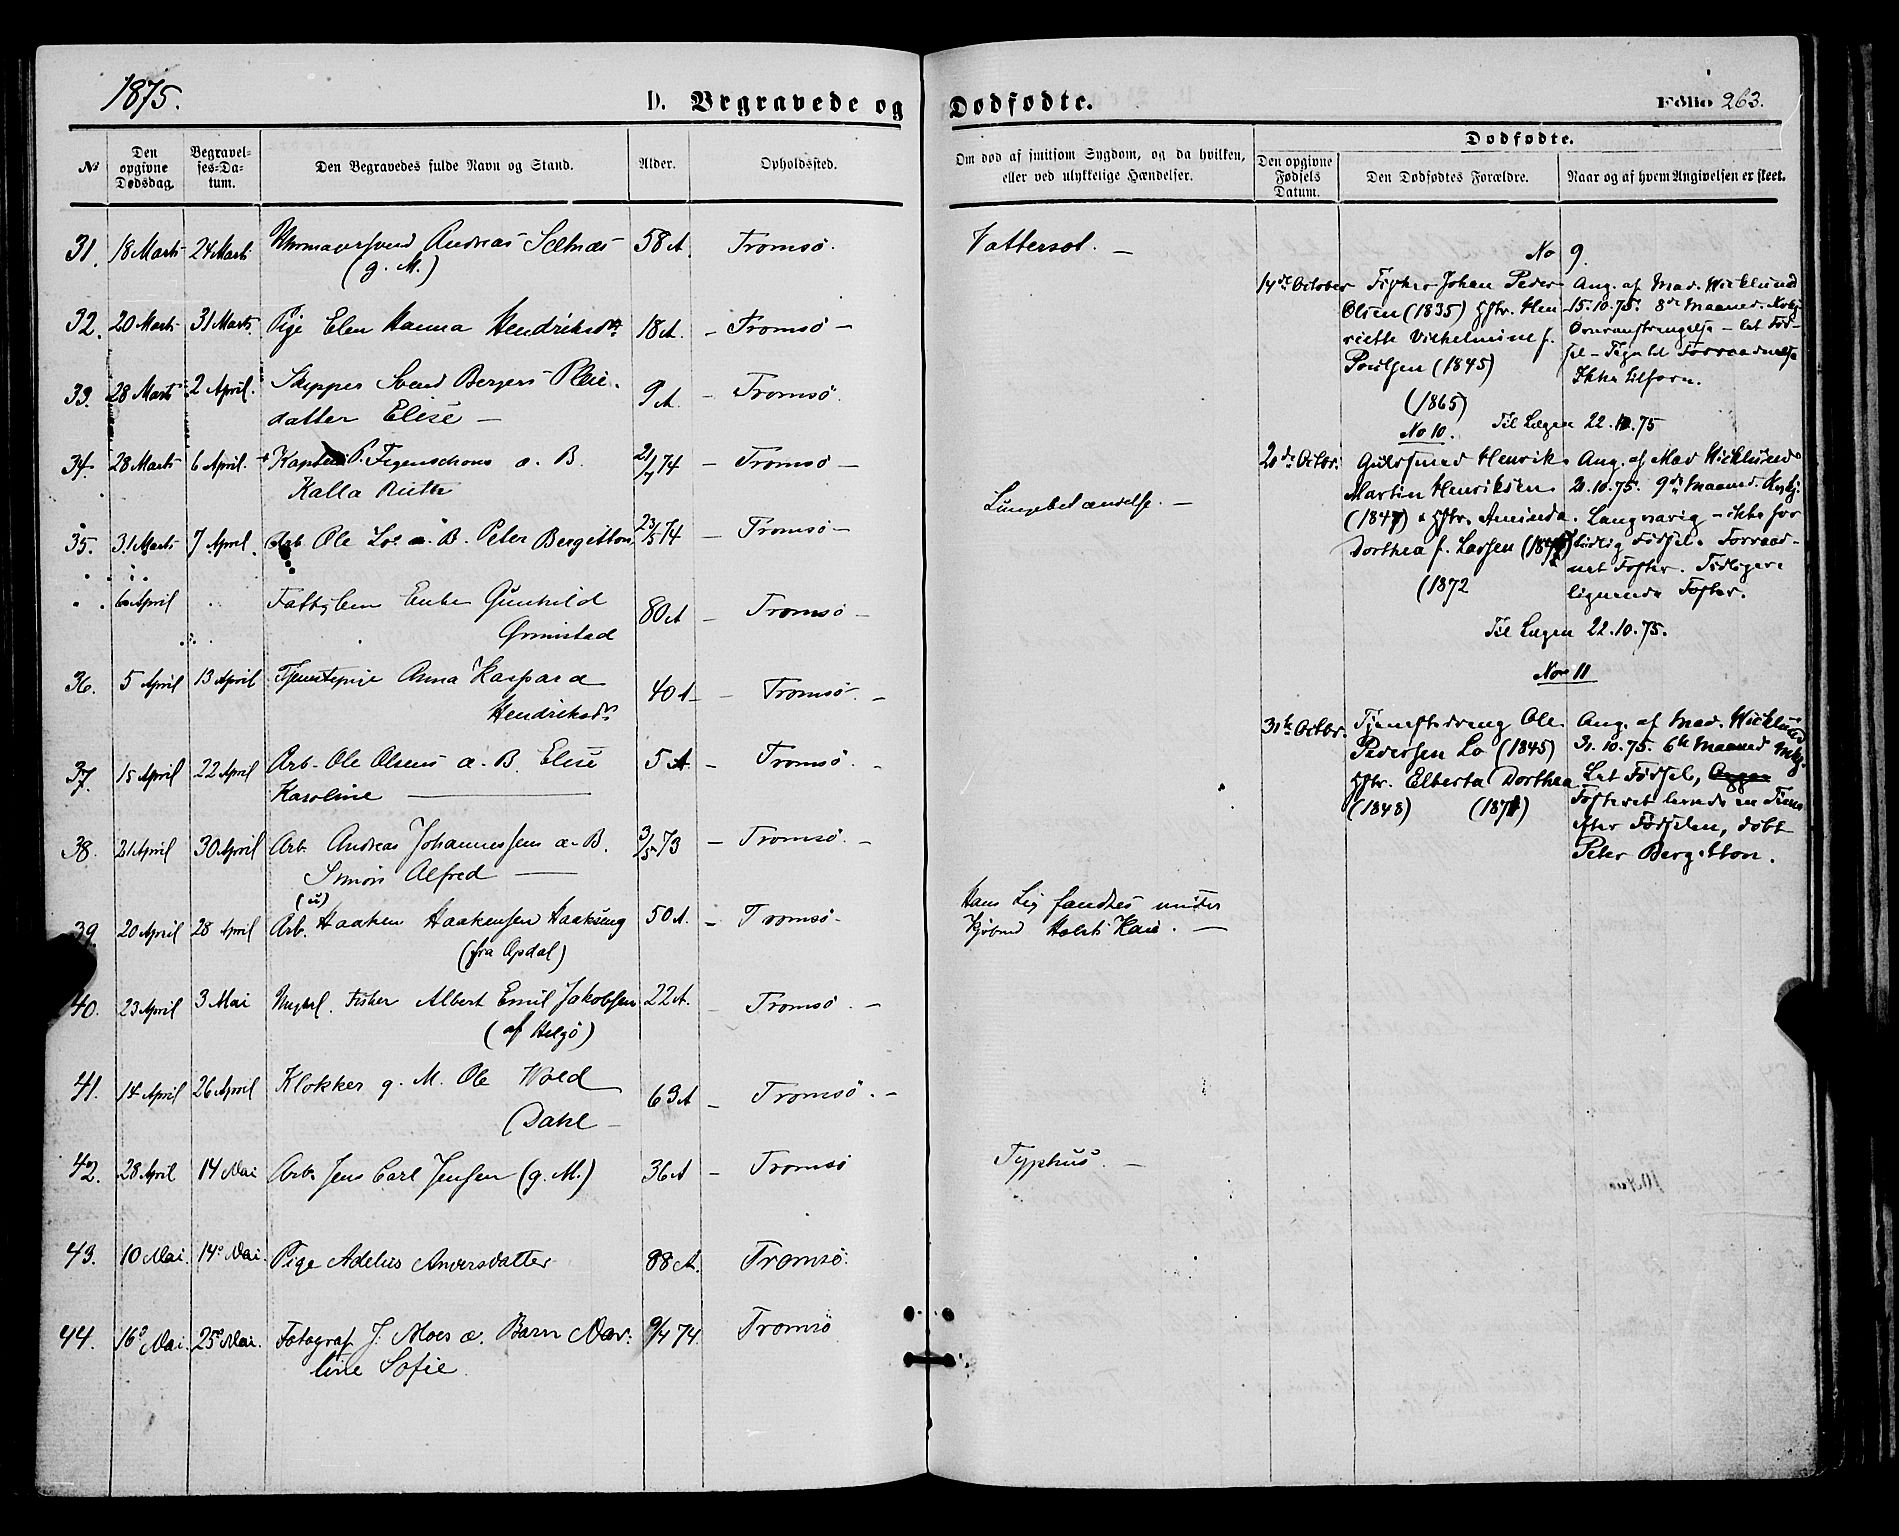 1875.
D. Begravede og Dødfødte.
Folio 263.
No
Den opgivne Dødsdag.
Begravelses-Datum.
Den Begravedes fulde Navn og Stand.
Alder.
Opholdssted.
Om død af smitsom Sygdom, og da hvilken, eller ved ulykkelige Hændelser.
Dødfødte.
Den opgivne Fødsels Datum.
Den Dødfødtes Forældre.
Naar og af hvem Angivelsen er skeet.
31. 18 Marts 24 Marts Urmagersvend Andreas Sætnæs 58 A Tromsø. Vattersot. —
(g. M.)
32. 20 Marts 31 Marts Pige Elen Hanna Hendriksdr 18 A — Tromsø —
33. 28 Marts 2 April. Skipper Svend Bergers Pleie-
datter Elise — 9 A. — Tromsø.
34. 28 Marts 6 April. Kaptein P. Figenschous æ. B. 21/7 74 — Tromsø —
Kalla Ruth
35. 31 Marts 7 April. Arb. Ole Los æ. B. Peter Bergitton 23/5 74 — Tromsø — Lungebetændelse. —
6 April Fattiglem Enke Gunhild 80 A — Tromsø —
Ørmistad
36. 5 April 13 April Tjenestepige Anna Kaspara 40 A — Tromsø. —
Hendriksdr
37. 15 April 22 April Arb. Ole Olsens æ. B. Elise 5 A. — Tromsø. —
Karoline —
38. 21 April 30 April Arb. Andreas Johannessens æ. B. 3/5 73 — Tromsø. —
Simon Alfred —
(u)
39. 20 April 28 April Arb. Haaken Haakensen Haakseng 50 A. — Tromsø — Hans Lig fandtes under
(fra Opdal) Kjøbmd Holsts Kai. —
40. 23 April 3 Mai Ungkl. Fisker Albert Emil Jakobsen 22 A. Tromsø. —
(af Helgø)
41. 14 April 26 April Klokker g. M. Ole Wold 63 A — Tromsø. —
Dahl —
42. 28 April 14 Mai Arb. Jens Carl Jensen (g. M.) 36 A — Tromsø Typhus. —
43. 10 Mai. 14de Mai. Pige Adelus Andersdatter 88 A. Tromsø.
44. 16de Mai. 25de Mai. Fotograf J. Moes æ. Barn Nav- 9/4 74. Tromsø
line Sofie.
No 9.
14de October Fisker Johan Peder Ang. af Mad. Wicklund
Olsen (1835) Hstr. Hen- 15.10.75. 8de Maaned.
riette Vilhelmine f. Overanstrengelse — let Fød-
Poulsen (1845) sel —
(1865) Ikke tilforn.
Til Lægen 22.10.75
No 10.
20de Octbr. Guldsmed Henrik Ang. af Mad Wicklund
Martin Henriksen 21.10.75. 9de Maaned.
(1847) & Hstr. Aminda Langvarig — ikke for
Dorthea f. Larsen tidlig Fødsel. Forraad-
(1872 net Foster. Tidligere
lignende Foster.
Til Lægen 22.10.75.
No 11
31te Octbr. Tjenestedreng Ole Ang. af Mad. Wicklund
Pedersen Lo (1845) 31.10.75. 6te Maaned
Hstr. Elberta Dorthea Let Fødsel,
(1848) (1871) Fosteret levede en Time
efter Fødselen, døbt
Peter Bergitton.